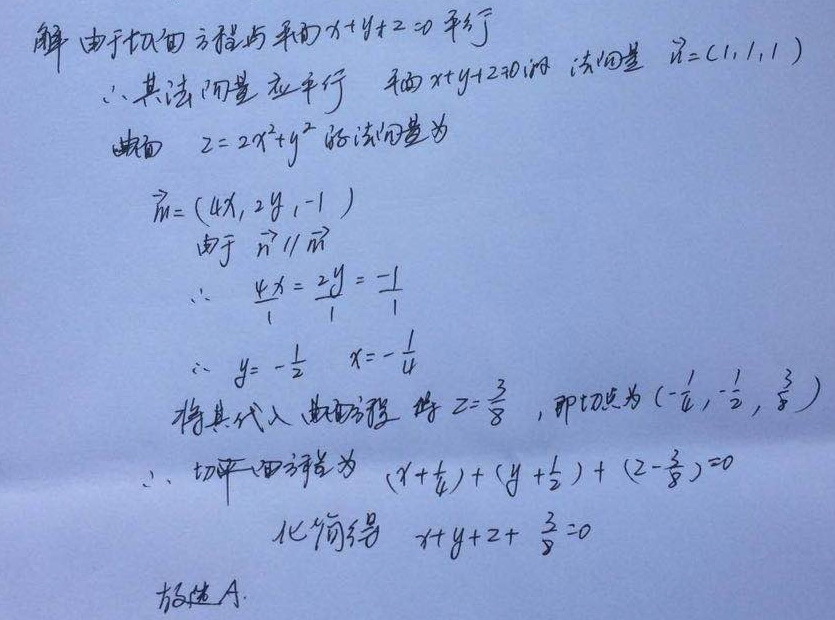 解 由于切面方程与平面x+y+z=0平行
∴其法向量应平行 平面x+y+z=0的 法向量 n⃗=(1,1,1)
曲面 z=2x²+y² 的法向量为
m⃗=(4x,2y,-1)
由于 n⃗//m⃗
∴ 4x/1=2y/1=-1/1
∴ y=-1/2 x=-1/4
将其代入曲面方程 得 z=3/8,即切点为(-1/4,-1/2,3/8)
∴切平面方程为 (x+1/4)+(y+1/2)+(z-3/8)=0
化简得 x+y+z+3/8=0
故选A.